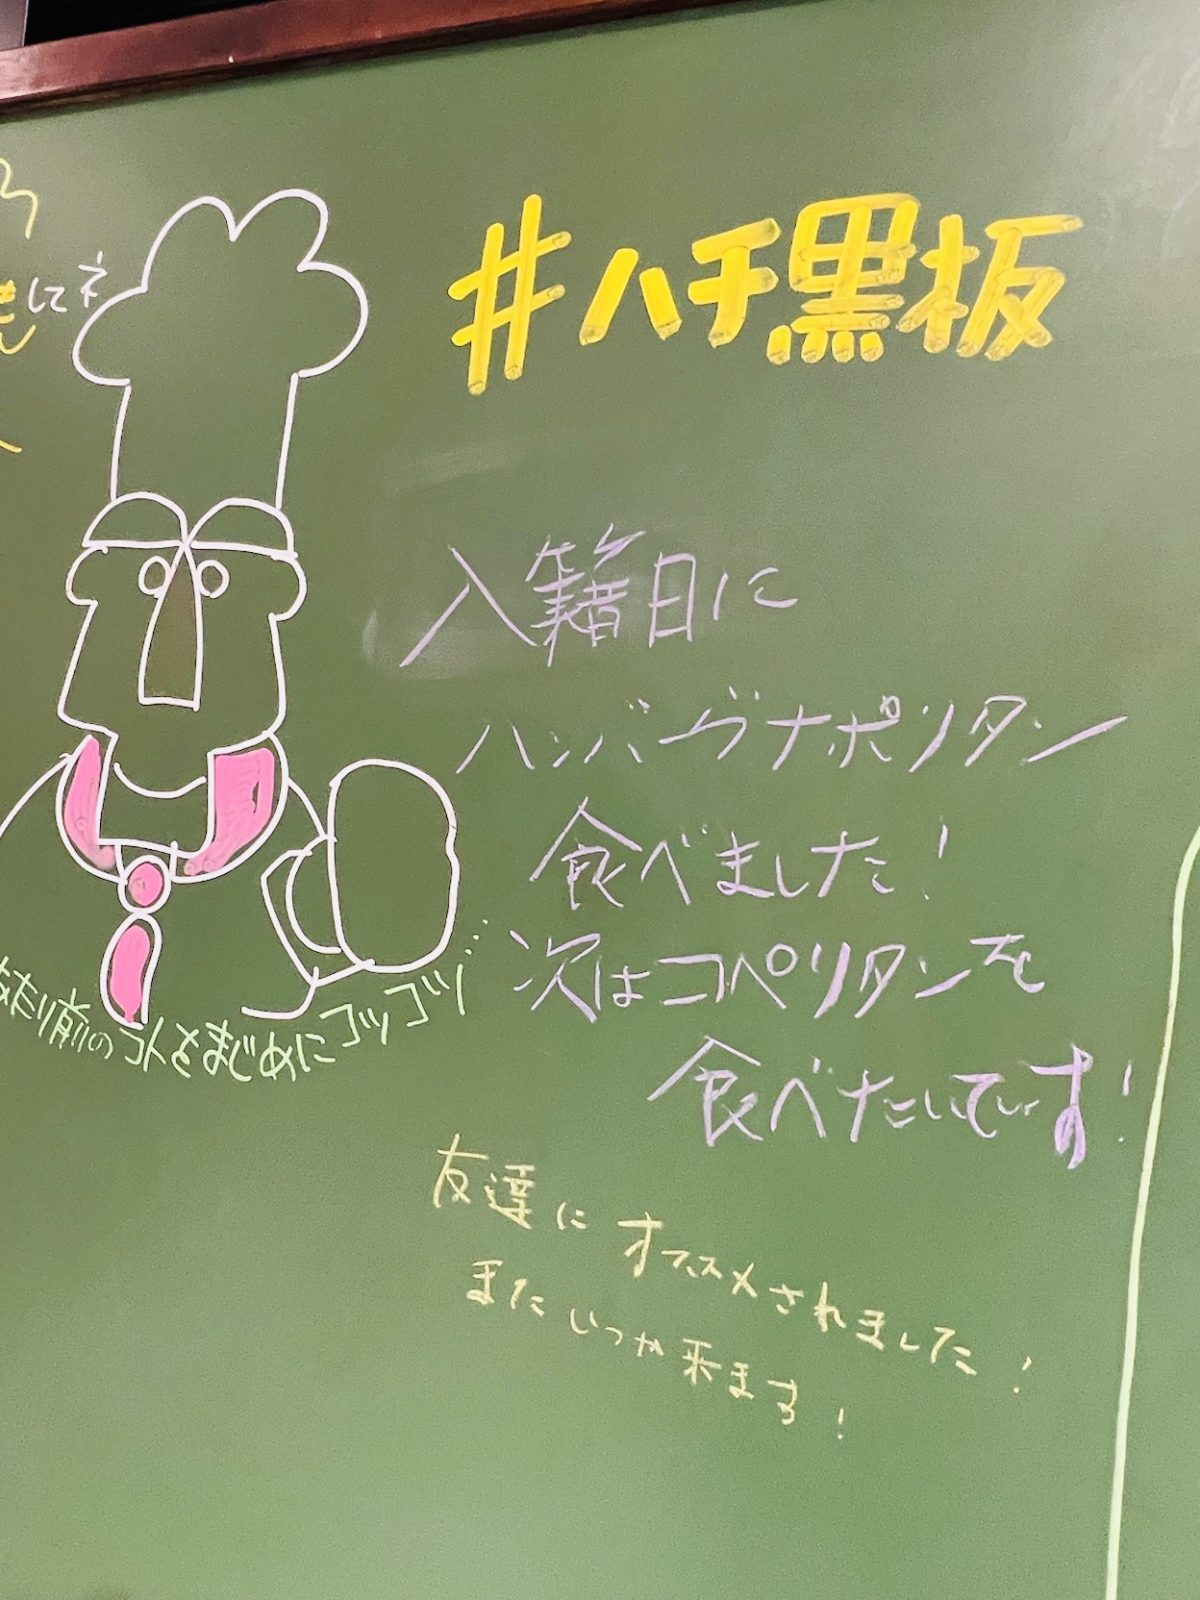 #ハチ黒板
してネ
入籍日に
ハンバーグナポリタン
食べました!
次はコペリタンを
食べたいです!
友達にオススメされました!
またいつか来ます!
あたり前のコトをまじめにコツコツ…